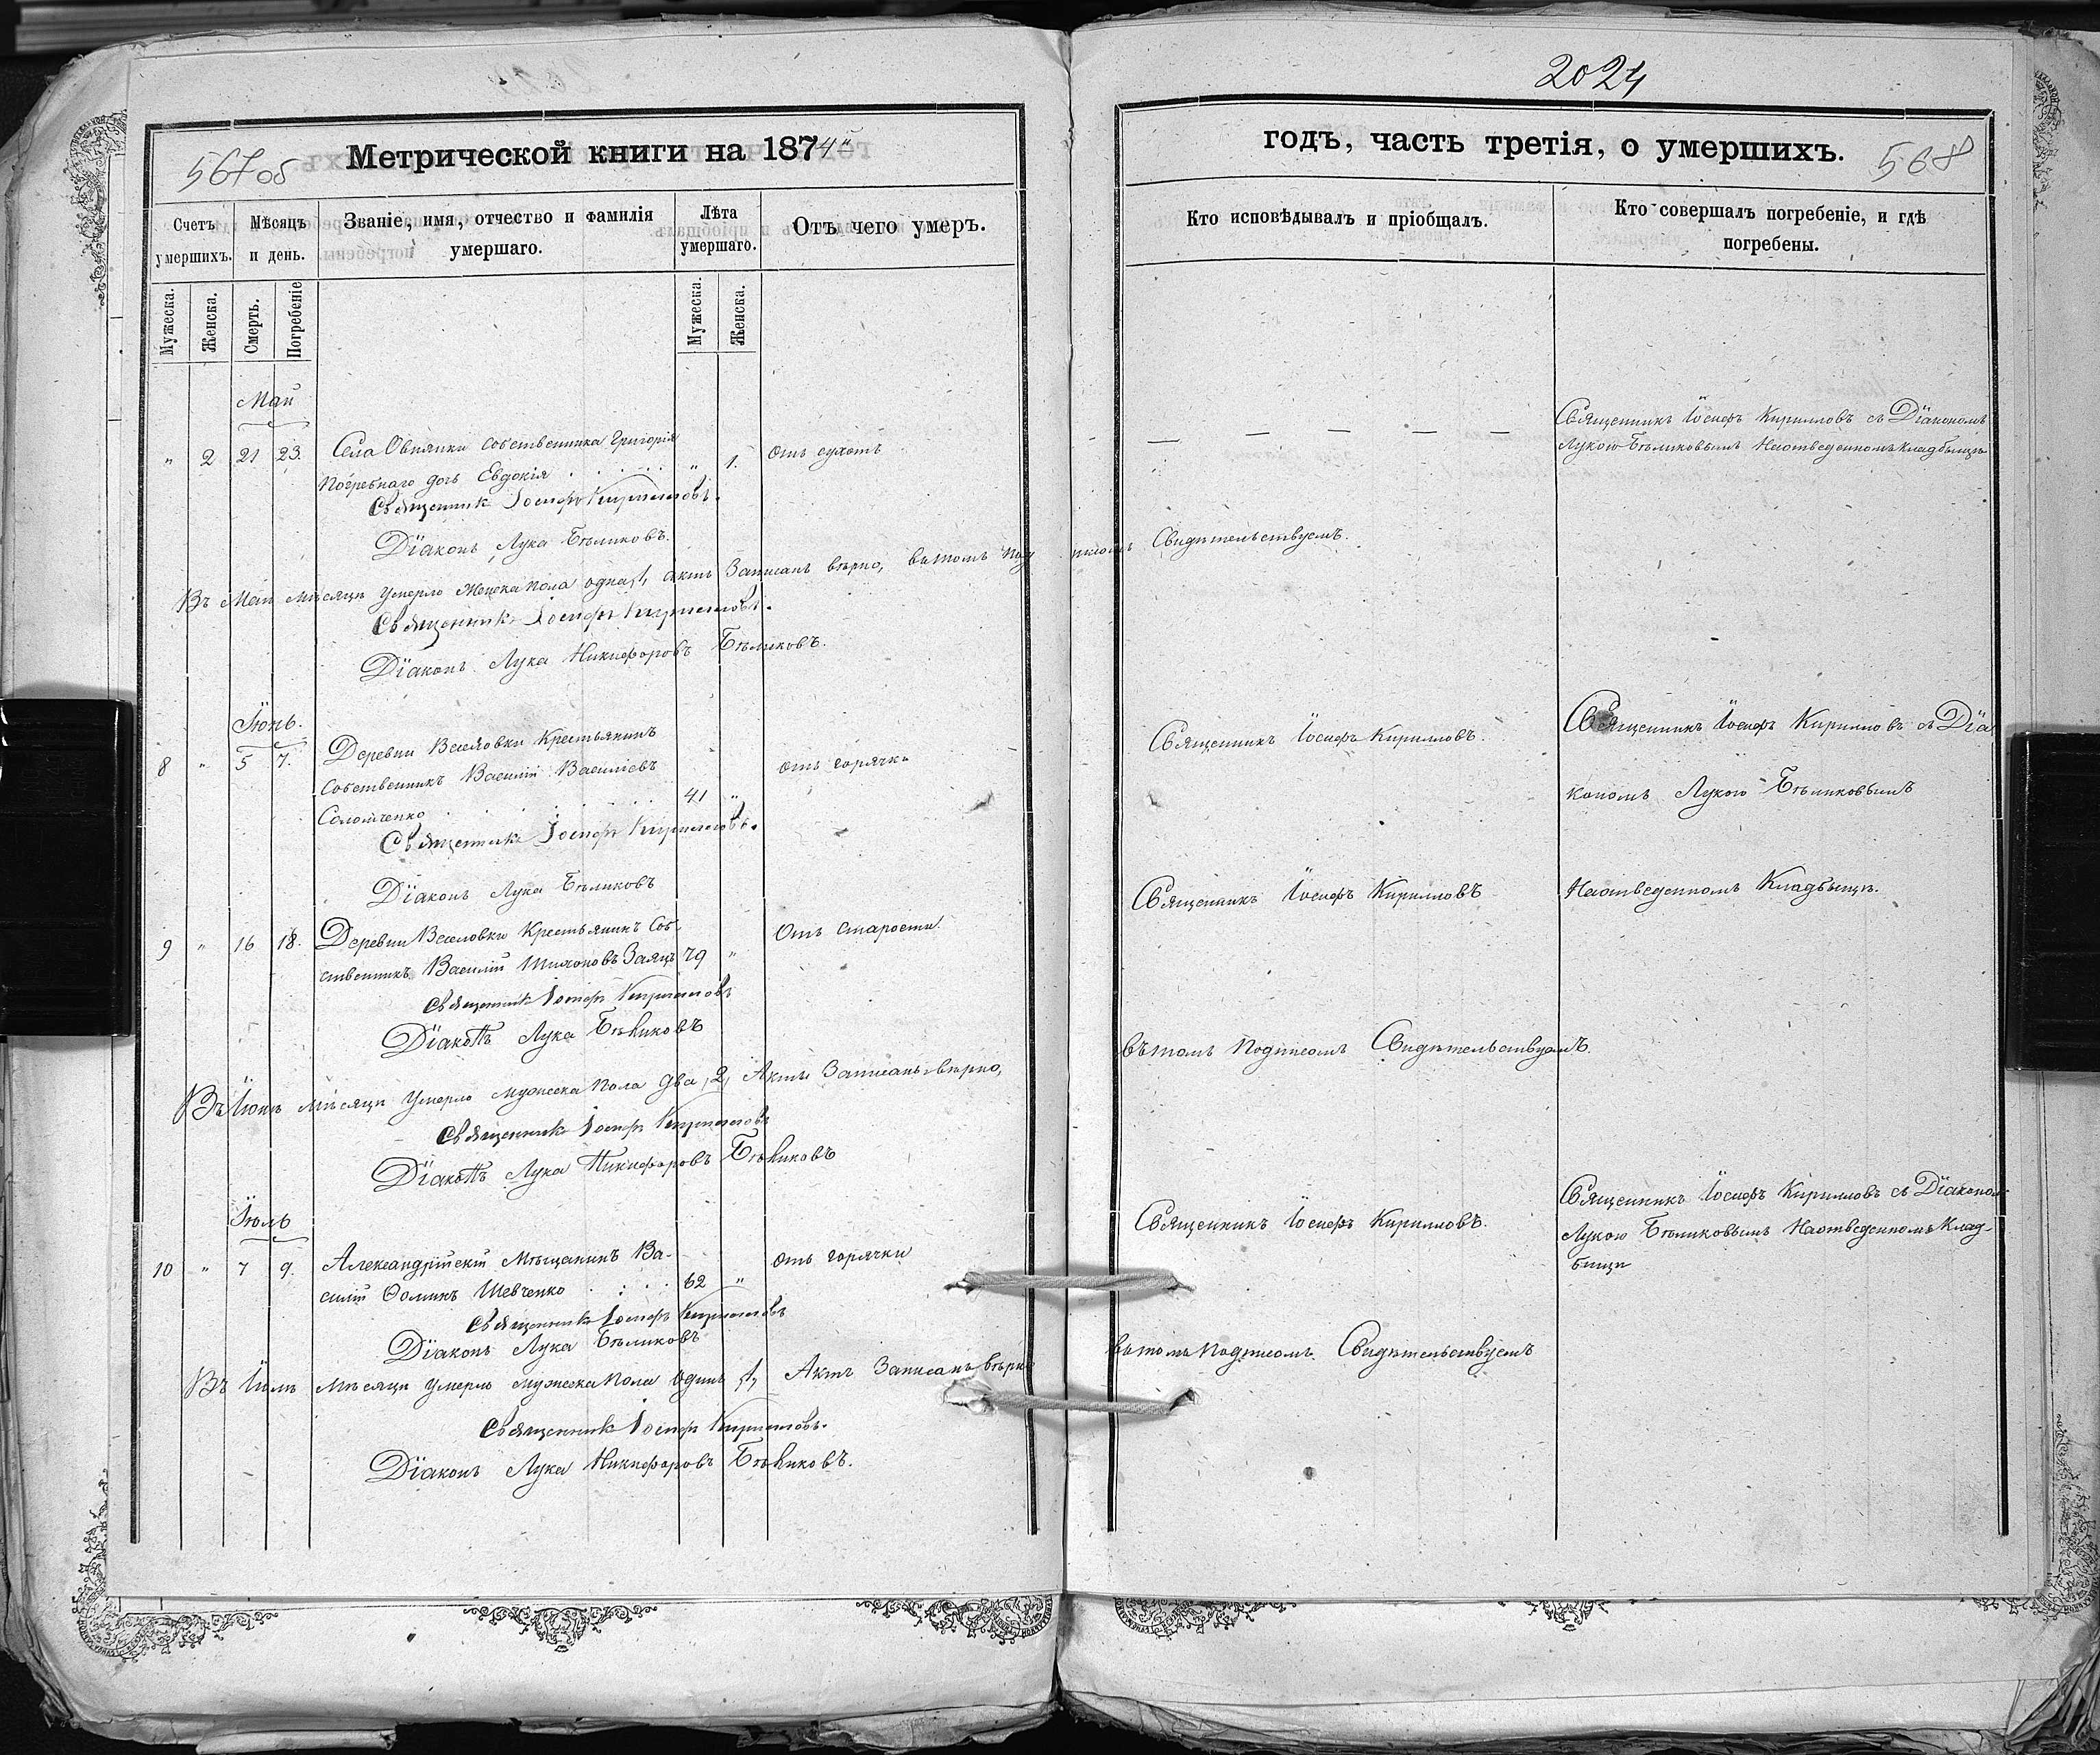 2024
567об
Метрической книги на 1874й
годъ, часть третія, о умершихъ.
568
Счетъ умершихъ.
Мѣсяцъ и день.
Званіе, имя, отчество и фамилія умершаго.
Лѣта умершаго.
Отъ чего умеръ.
Кто исповѣдывалъ и пріобщалъ.
Кто совершалъ погребеніе, и гдѣ погребены.
Мужеска.
Женска.
Смерть.
Погребеніе
Мужеска.
Женска.
Май
" 2 21 23. Села собственника Григорія
дочь Евдокія " 1. отъ сухотъ
Священникъ Іосифъ Кирилловъ съ Діакономъ
Лукою Бѣликовымъ Наотведенномъ кладбищѣ
Священникъ Іосифъ Кирилловъ.
Діаконъ Лука Бѣликовъ.
Въ Маѣ мѣсяцѣ умерло Женска пола одна, 1, актъ Записанъ вѣрно, вътомъ под писомъ Свидѣтельствуемъ.
Священникъ Іосифъ Кирилловъ.
Діаконъ Лука Никифоровъ Бѣликовъ.
Іюнь.
8 " 5 7. Деревни Веселовки Крестьянинъ
Собственникъ Василій Василіевъ
41 " отъ горячки
Священникъ Іосифъ Кирилловъ.
Священникъ Іосифъ Кирилловъ съ Діа
кономъ Лукою Бѣликовымъ
Священникъ Іосифъ Кирилловъ.
Діаконъ Лука Бѣликовъ
9 " 16 18. Деревни Веселовки Крестьянинъ Соб-
ственникъ Василій Заяцъ 79 " Отъ старости.
Священникъ Іосифъ Кирилловъ
Наотведенномъ Кладбищѣ.
Священникъ Іосифъ Кирилловъ
Діаконъ Лука Бѣликовъ
Въ Іюнѣ мѣсяцѣ Умерло мужеска пола два, 2, Актъ Записанъ вѣрно,
вътомъ подписомъ Свидѣтельствуемъ.
Священникъ Іосифъ Кирилловъ
Діаконъ Лука Никифоровъ Бѣликовъ
Іюль
10 " 7 9. Александрійскій Мѣщанинъ Ва-
силій Ѳоминъ Шевченко 62 " отъ горячки
Священникъ Іосифъ Кирилловъ.
Священникъ Іосифъ Кирилловъ съ Діаконом
Лукою Бѣликовымъ Наотведенномъ Клад-
бищѣ
Священникъ Іосифъ Кирилловъ
Діаконъ Лука Бѣликовъ
Въ Іюлѣ мѣсяцѣ умерло мужеска пола одинъ, 1, Актъ Записанъ вѣрно
вътомъ подписомъ Свидѣтельствуемъ
Священникъ Іосифъ Кирилловъ.
Діаконъ Лука Никифоровъ Бѣликовъ.